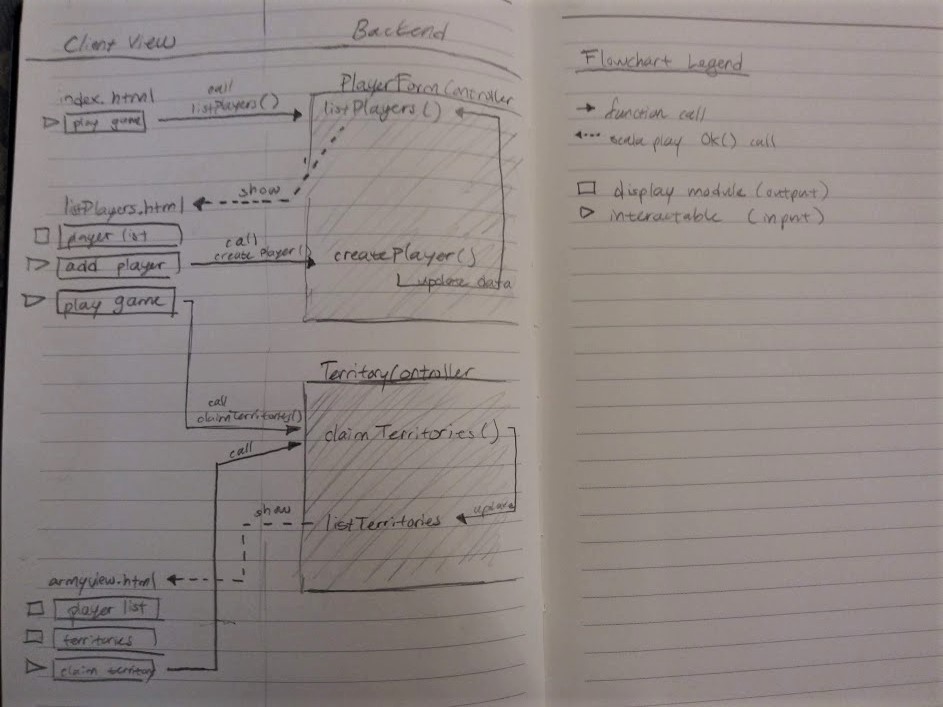 Client View
Backend
index.html
play game
call
listPlayers()
PlayerFormController
listPlayers()
show
listPlayers.html
player list
add player
play game
call
createPlayer()
createPlayer()
update data
TerritoryController
call
claimTerritories()
call
claimTerritories()
show
listTerritories
update
armyview.html
player list
territories
claim territory
Flowchart Legend
function call
scala play Ok() call
display module (output)
interactable (input)